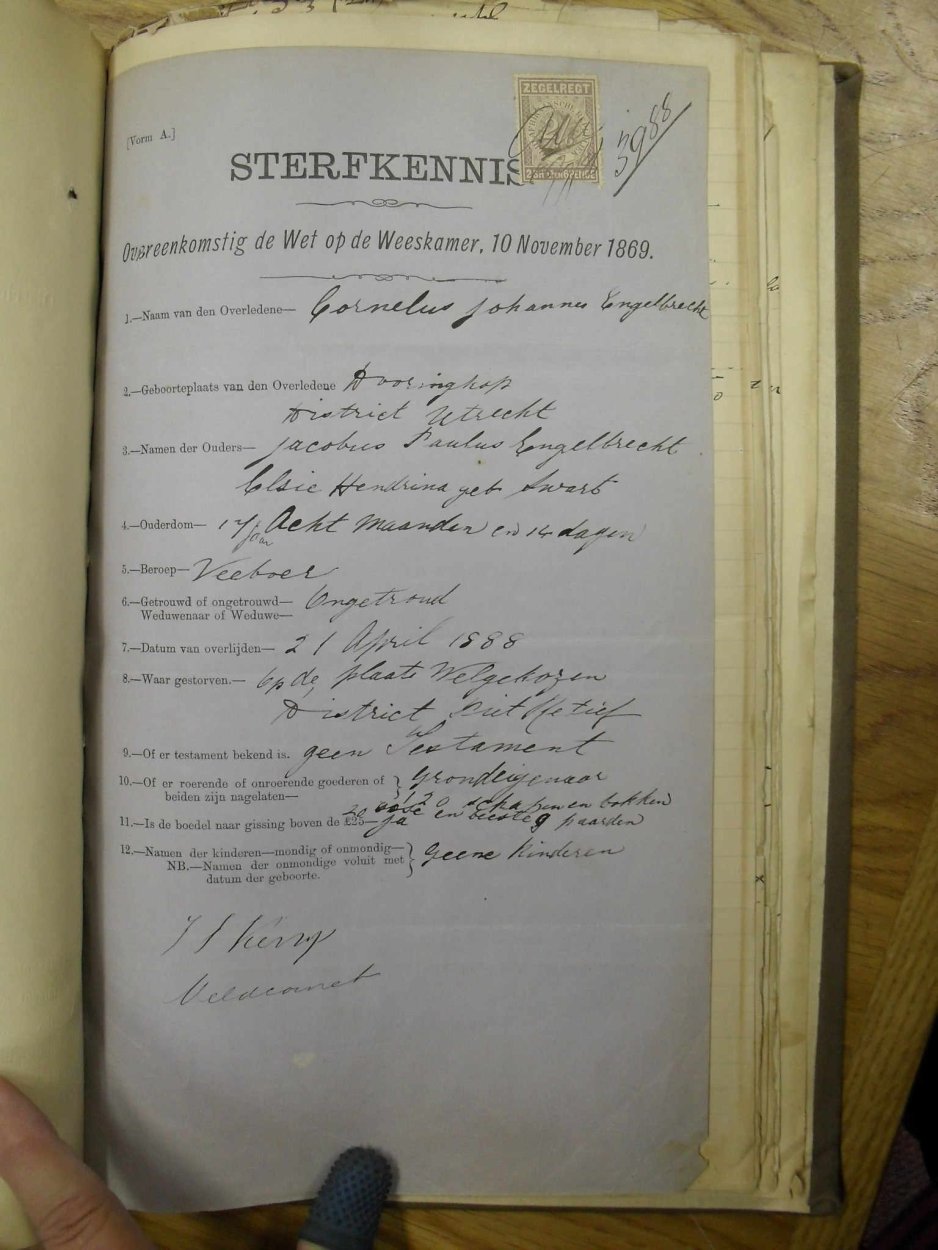 [Vorm A.]
ZEGELREGT
3988
STERFKENNIS
Overeenkomstig de Wet op de Weeskamer, 10 November 1869.
1.—Naam van den Overledene— Cornelus Johannes Engelbrecht
2.—Geboorteplaats van den Overledene Dooringkop
District Utrecht
3.—Namen der Ouders— Jacobus Paulus Engelbrecht
Elsie Hendrina geb Swart
4.—Ouderdom— 17 jaar Acht maanden en 14 dagen
5.—Beroep— Veeboer
6.—Getrouwd of ongetrouwd— Ongetroud
Weduwenaar of Weduwe—
7.—Datum van overlijden— 21 April 1888
8.—Waar gestorven.— Op de plaats Welgekozen
District Piet Retief
9.—Of er testament bekend is. geen Testament
10.—Of er roerende of onroerende goederen of } Grondeigenaar
beiden zijn nagelaten— schapen en bokken
11.—Is de boedel naar gissing boven de £25— ja en beeste 9 paarden
12.—Namen der kinderen—mondig of onmondig— } Geene Kinderen
NB.—Namen der onmondige voluit met
datum der geboorte.
Veldcornet